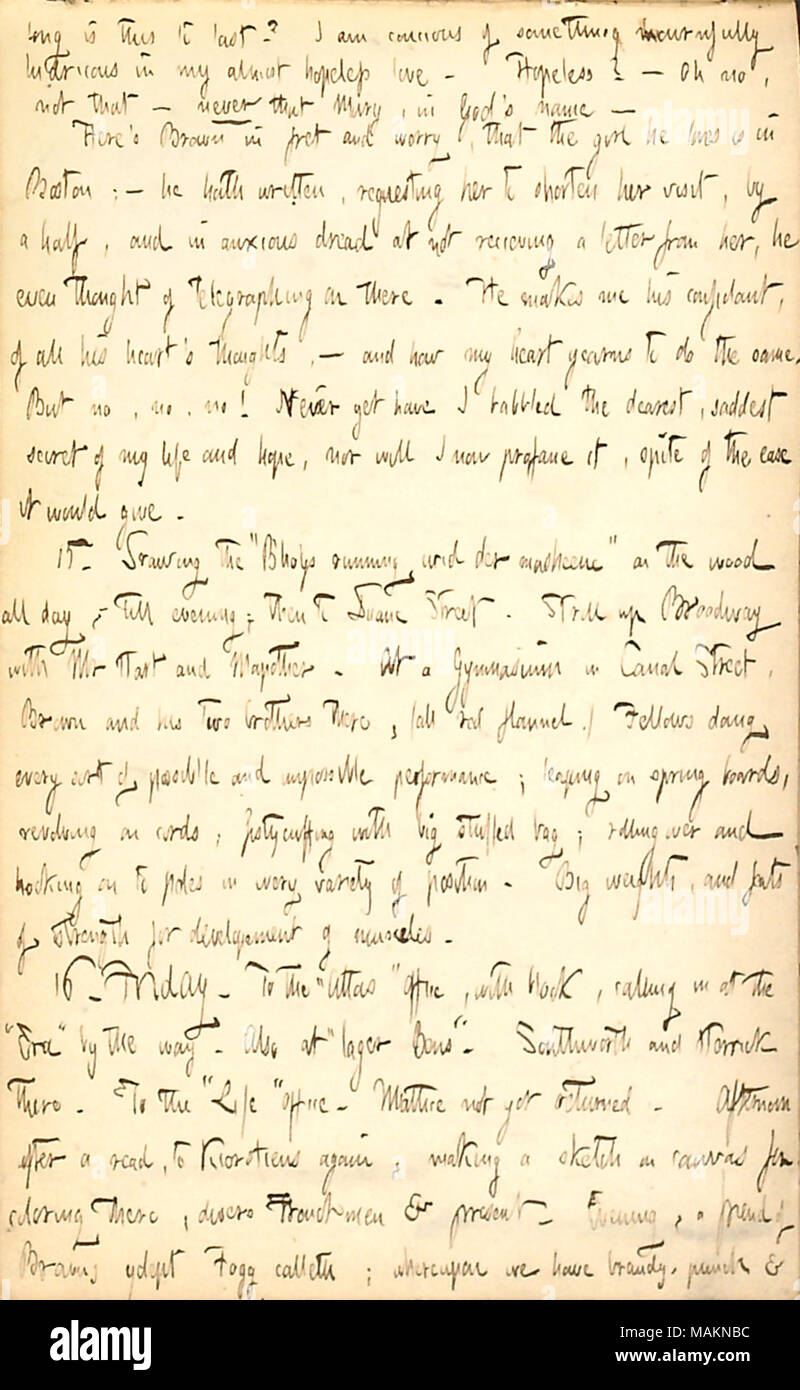 long is this to last? I am concious of something mournfully
ludricous in my almost hopeless love. Hopeless? — Oh no,
not that — never that Mary, in God's name —
Here's Brown in fret and worry, that the girl he loves is in
Boston; — he hath written, requesting her to shorten her visit, by
a half, and in anxious dread at not recieving a letter from her, he
even thought of Telegraphing on there. He makes me his confidant,
of all his heart's thoughts, — and how my heart yearns to do the same.
But no, no, no! Never yet have I babbled the dearest, saddest
secret of my life and hope, nor will I now profane it, spite of the ease
it would give.
15. Drawing the "B'hoys running wid der masheene" on the wood
all day, till evening; then to Duane Street. Stroll up Broadway
with Mr Hart and Mapother. At a Gymnasium in Canal Street,
Brown and his two brothers there, (all red flannel.) Fellows doing
every sort of possible and impossible performance; leaping on spring boards,
revolving on cords; fistycuffing with big stuffed bag; rolling over and
hooking on to poles in every variety of position. Big weights, and feats
of strength for development of muscles.
16. Friday. To the "Office, with Hook, calling in at the
"Era" by the way. Also at "lager Bens". Southworth and Herrick
there. To the "Life "Office. Mattice not yet returned. Afternoon
after a read, to again, making a sketch on canvas for
coloring there, divers Frenchmen & present. Evening, a friend of
Brown's yclept Fogg calleth; whereupon we have brandy-punch &
alamy
Image ID: MAKNBC
www.alamy.com